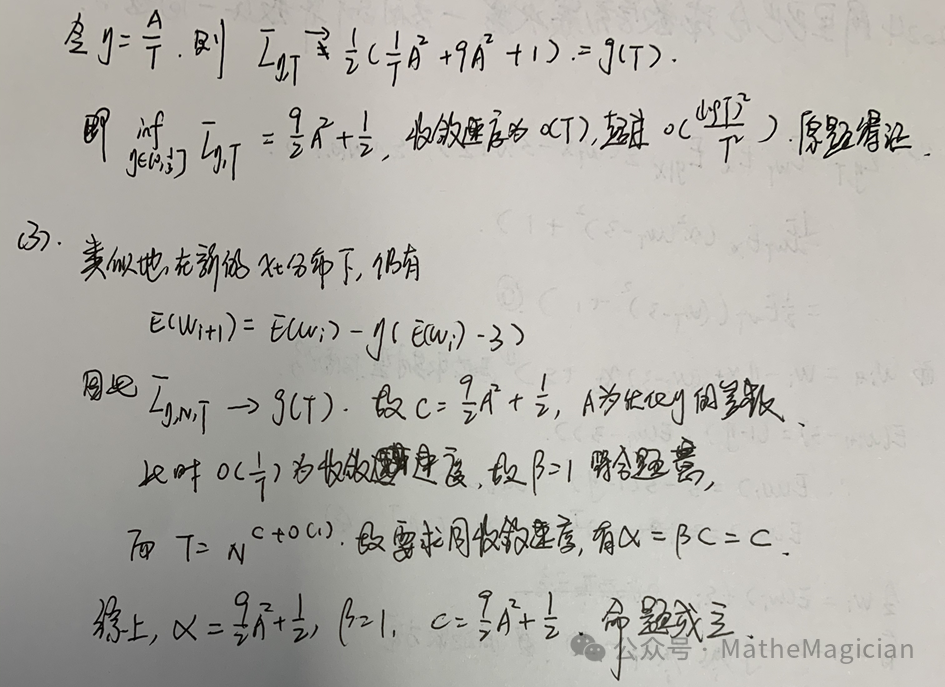 令 y = A/T. 则 L̄_{y,T} → 1/2 ( 1/T A² + 9A² + 1 ). = g(T).
即 inf_{y∈(0,1/3]} L̄_{y,T} = 9/2 A² + 1/2, 收敛速度为 o(T), 超过 o( (log T)²/T² ). 原题得证.
(3). 类似地, 在新的 x_t 分布下, 仍有
E(w_{i+1}) = E(w_i) - y( E(w_i) - 3 )
因此 L̄_{y,N,T} → g(T). 故 C = 9/2 A² + 1/2, A为优化y的参数.
此时 o(1/T) 为收敛速度, 故 β=1 符合题意,
而 T = N^{C+o(1)}. 故要求同收敛速度, 有 α = βC = C.
综上, α = 9/2 A² + 1/2, β=1, C = 9/2 A² + 1/2. 命题成立.
公众号 · MatheMagician